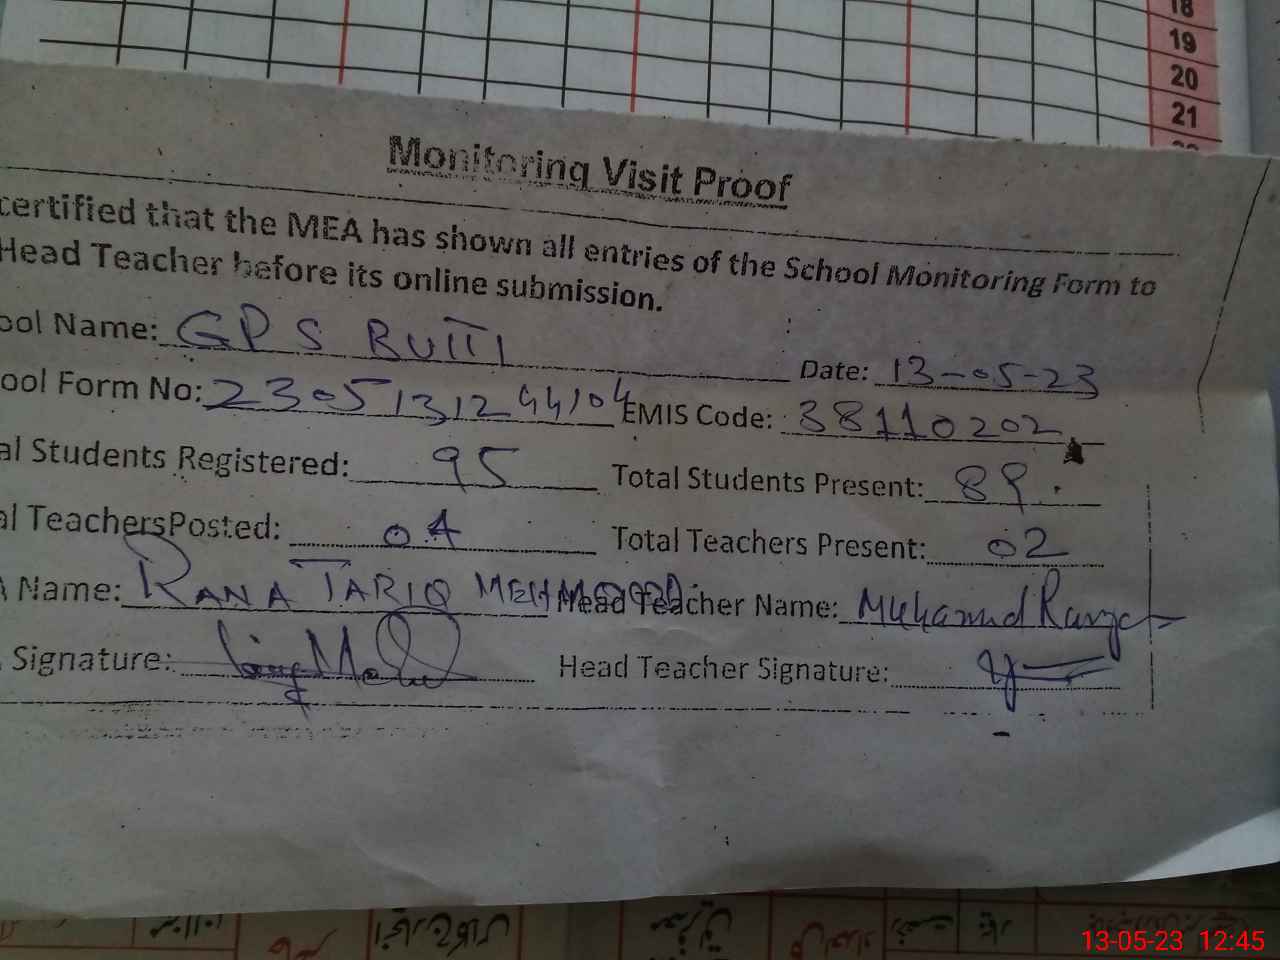 18
19
20
21
Monitoring Visit Proof
certified that the MEA has shown all entries of the School Monitoring Form to
Head Teacher before its online submission.
ool Name: GPS BUTTI
Date: 13-05-23
ool Form No: 2305131244104 EMIS Code: 38110202
al Students Registered: 95 Total Students Present: 89
al TeachersPosted: 04 Total Teachers Present: 02
Name: RANA TARIQ MEHMOOD Head Teacher Name: Muhammd
Signature: Head Teacher Signature:
13-05-23 12:45